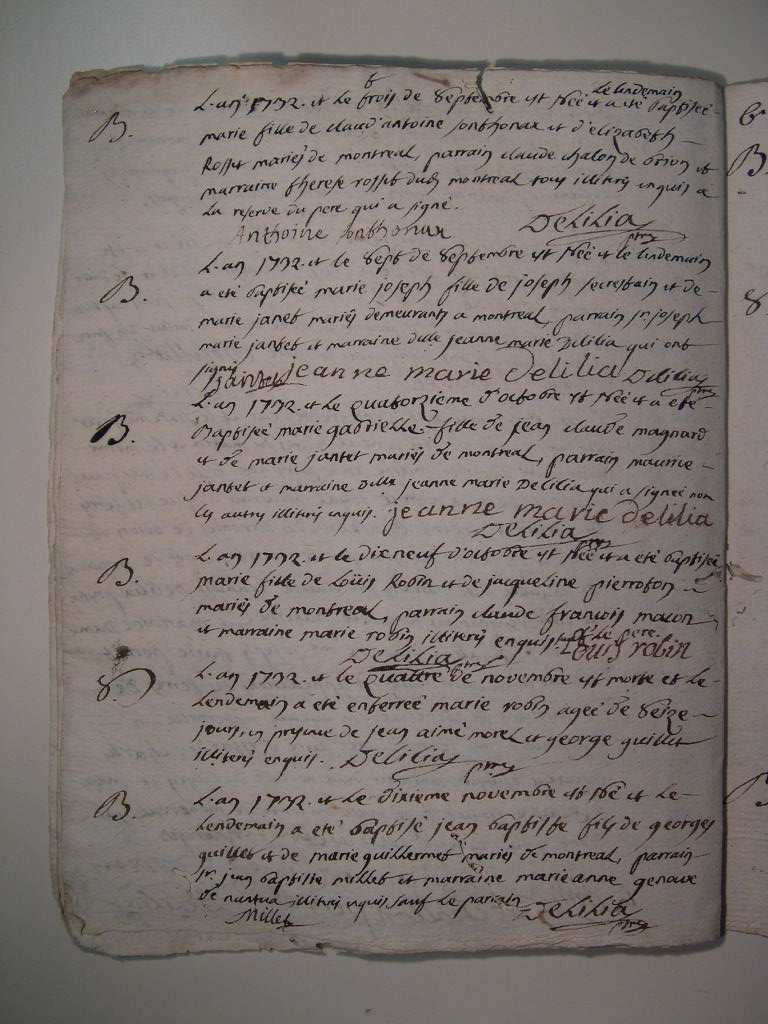 B. L'an 1732. et le trois de septembre est née et le lendemain a été baptisée
marie fille de claud'antoine sonthonax et d'elizabeth
Rosset mariés de montreal, parrain claude chalon de et
marraine therese rosset dudt montreal tous illiterés enquis a
la reserve du pere qui a signé.
Anthoine sonthonax Delilia ptre
B. L'an 1732. et le sept de septembre est née et le lendemain
a été baptisée marie joseph fille de joseph secrestain et de
marie jantet mariés demeurants a montreal, parrain sr. joseph
marie jantet et marraine dulle jeanne marie Delilia qui ont
signés
jantet jeanne marie delilia Delilia ptre
B. L'an 1732. et le quatorzieme d'octobre est née et a été
Baptisée marie gabrielle fille de jean claude magnard
et de marie jantet mariés de montreal, parrain maurice
jantet et marraine dulle jeanne marie Delilia qui a signée non
les autres illiterés enquis. jeanne marie delilia
Delilia ptre
B. L'an 1732. et le dieneuf d'octobre est née et a été baptisée
marie fille de Loüis Robin et de jacqueline pierroton
mariés de montreal, parrain claude francois macon
et marraine marie robin illiterés enquis le pere.
Delilia ptre Louis robin
S. L'an 1732. et le quattre de novembre est morte et le
lendemain a été enterrée marie robin ageé de seize
jours, en presence de jean aimé morel et george guillet
illiterés enquis. Delilia ptre
B. L'an 1732. et le dixieme novembre est né et le
lendemain a été baptisé jean baptiste fils de georges
guillet et de marie guillermet mariés de montreal, parrain
sr. jean baptiste millet et marraine marie anne genoux
de nantua illiterés enquis, sauf le parrain
Millet Delilia ptre